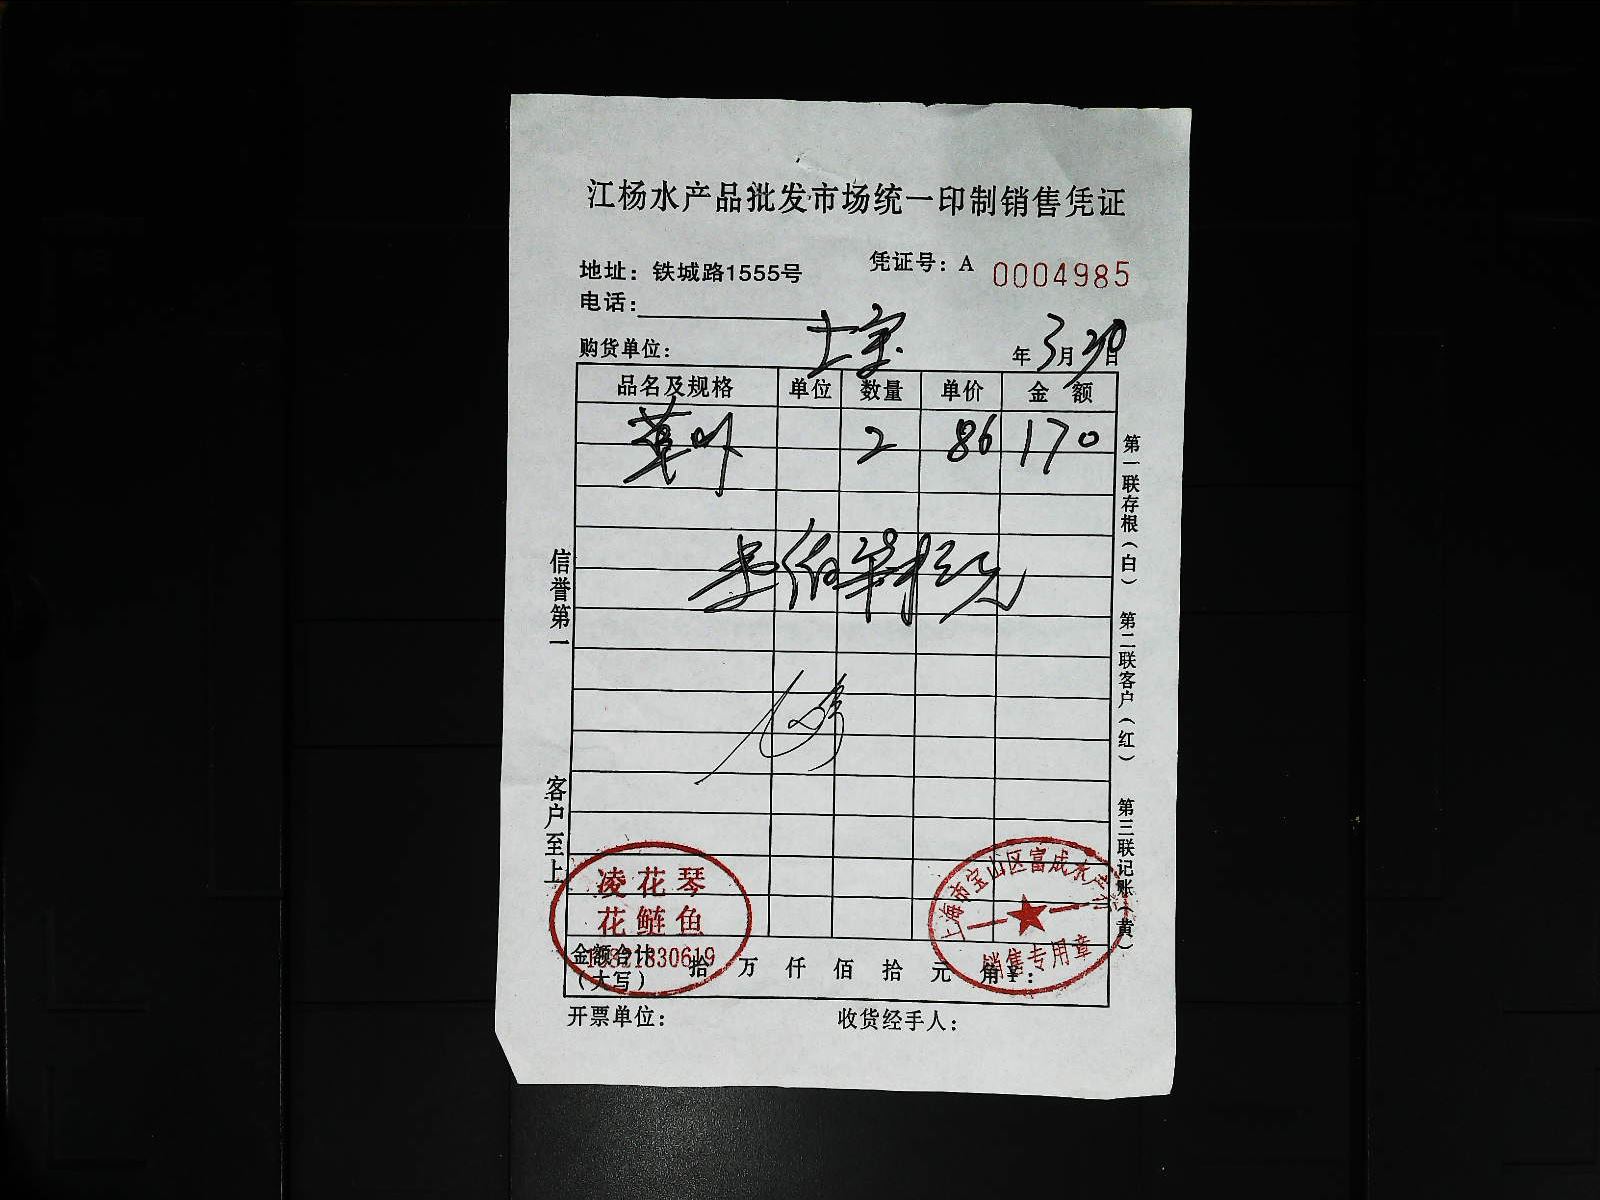 江杨水产品批发市场统一印制销售凭证
地址：铁城路1555号
凭证号：A 0004985
电话：
购货单位：
年 3 月 30 日
品名及规格 单位 数量 单价 金 额
2 86 170
信誉第一
客户至上
第一联存根（白） 第二联客户（红） 第三联记账（黄）
凌花琴
花鲢鱼
上海市宝山区富成水产
销售专用章
金额合计（大写） 拾 万 仟 佰 拾 元 角 ¥：
开票单位：
收货经手人：